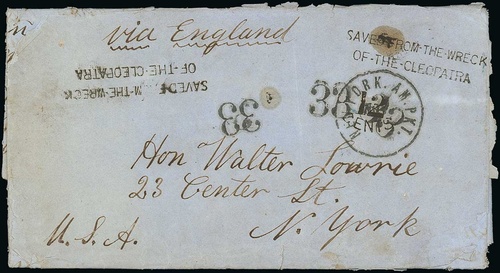 via England
SAVED FROM-THE-WRECK
OF-THE-CLEOPATRA
SAVED M-THE-WRECK
OF-THE-CLEOPATRA
33
33
YORK. AM. PKT.
Hon Walter Lowrie
23 Center St.
N. York
U. S. A.